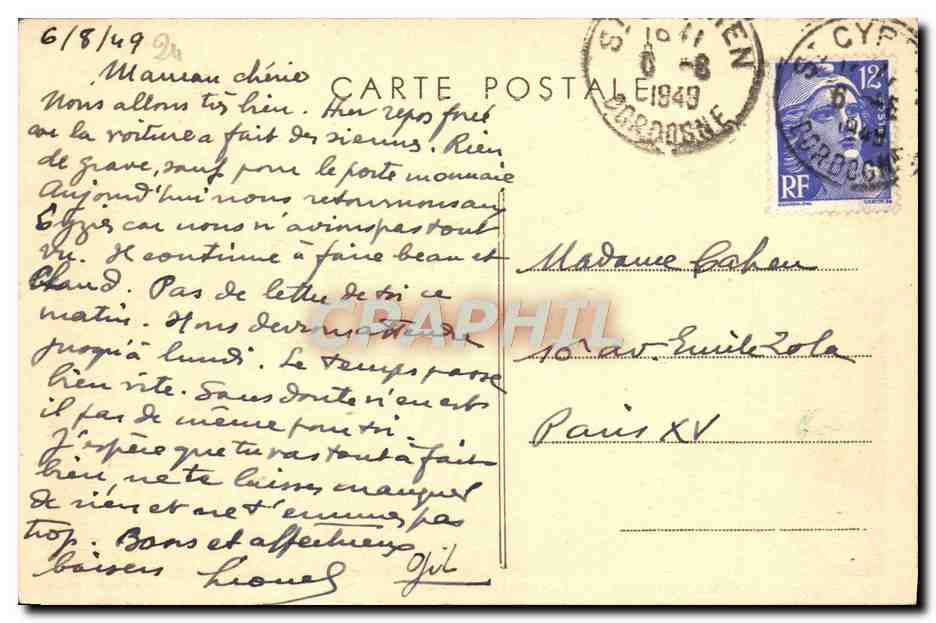 6/8/49
24
Maman chérie
CARTE POSTALE
Nous allons très bien. Hier repos forcé
car la voiture a fait des siennes. Rien
de grave, sauf pour le porte monnaie
Aujourd'hui nous retournons aux
Eyzies car nous n'avions pas tout
vu. Il continue à faire beau et
chaud. Pas de lettre de toi ce
matin. Nous devrons attendre
jusqu'à lundi. Le temps passe
bien vite. Sans doute n'en est
il pas de même pour toi.
J'espère que tu vas tout à fait
bien, ne te laisses manquer
de rien et ne t'ennuies pas
trop. Bons et affectueux
baisers Lionel
CYPRIEN
18 11
6 -8
1949
DORDOGNE
St CYPR
6 -8
1949
DORDOGNE
12F
POSTES
RF
Madame Cahen
10 av. Emile Zola
Paris XV
CPAPHIL